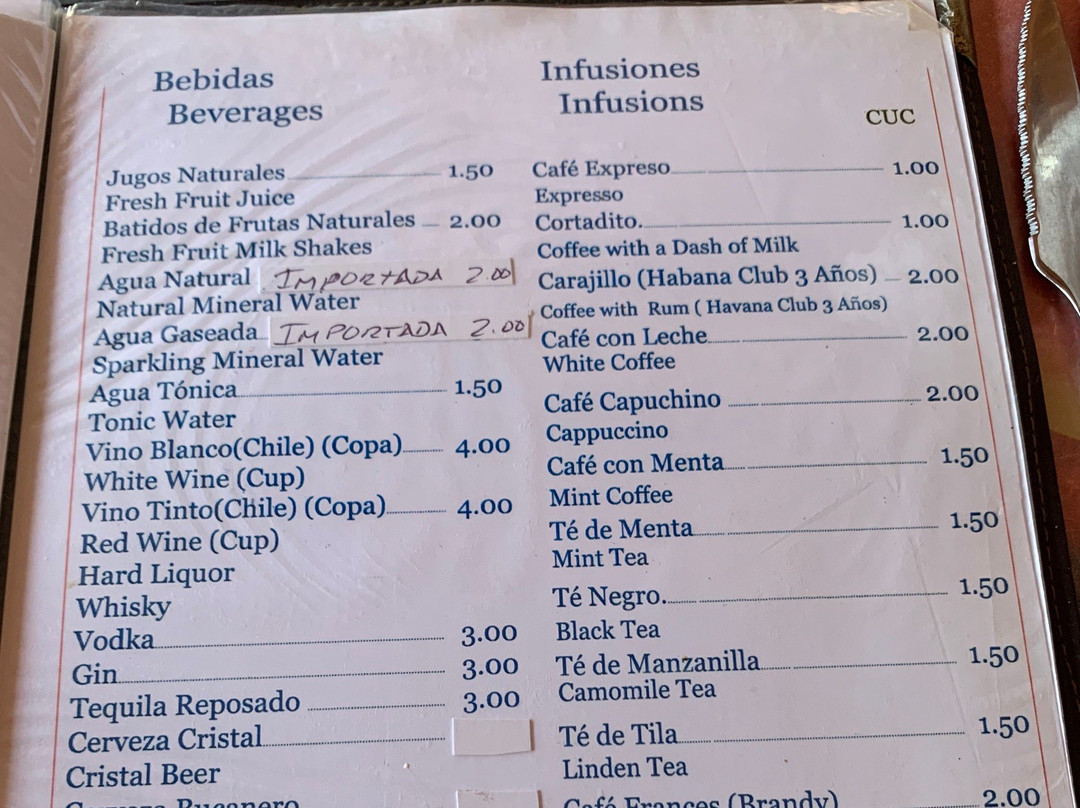 Bebidas
Beverages
Jugos Naturales 1.50
Fresh Fruit Juice
Batidos de Frutas Naturales 2.00
Fresh Fruit Milk Shakes
Agua Natural IMPORTADA 2.00
Natural Mineral Water
Agua Gaseada IMPORTADA 2.00
Sparkling Mineral Water
Agua Tónica 1.50
Tonic Water
Vino Blanco(Chile) (Copa) 4.00
White Wine (Cup)
Vino Tinto(Chile) (Copa) 4.00
Red Wine (Cup)
Hard Liquor
Whisky
Vodka 3.00
Gin 3.00
Tequila Reposado 3.00
Cerveza Cristal
Cristal Beer
Cerveza Bucanero
Infusiones
Infusions
CUC
Café Expreso 1.00
Expresso
Cortadito. 1.00
Coffee with a Dash of Milk
Carajillo (Habana Club 3 Años) 2.00
Coffee with Rum ( Havana Club 3 Años)
Café con Leche 2.00
White Coffee
Café Capuchino 2.00
Cappuccino
Café con Menta 1.50
Mint Coffee
Té de Menta 1.50
Mint Tea
Té Negro. 1.50
Black Tea
Té de Manzanilla 1.50
Camomile Tea
Té de Tila 1.50
Linden Tea
Café Frances (Brandy) 2.00